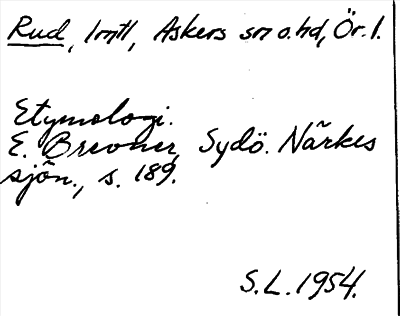 Rud, 1mtl, Askers sn o. hd, Ör. l.
Etymologi.
E. Brevner, Sydö. Närkes
sjön., s. 189.
S.L. 1954.